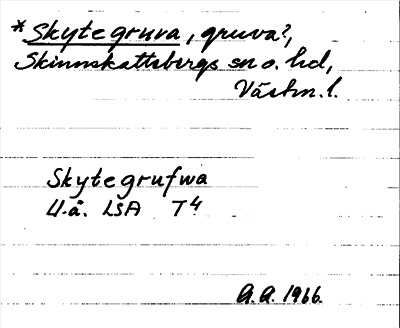 *Skytegruva, gruva?,
Skinnskattebergs sn o. hd,
Västm. l.
Skytegrufwa
U.å. LSA T4
A.A. 1966.